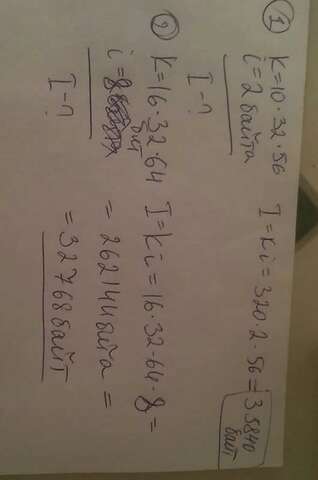 1 K=10·32·56 I=Ki=320·2·56=35840 байт
i=2 байта
I-?
2 K=16·32·64 I=Ki=16·32·64·8=
i=8 бит =262144 бита =
I-? =32768 байт